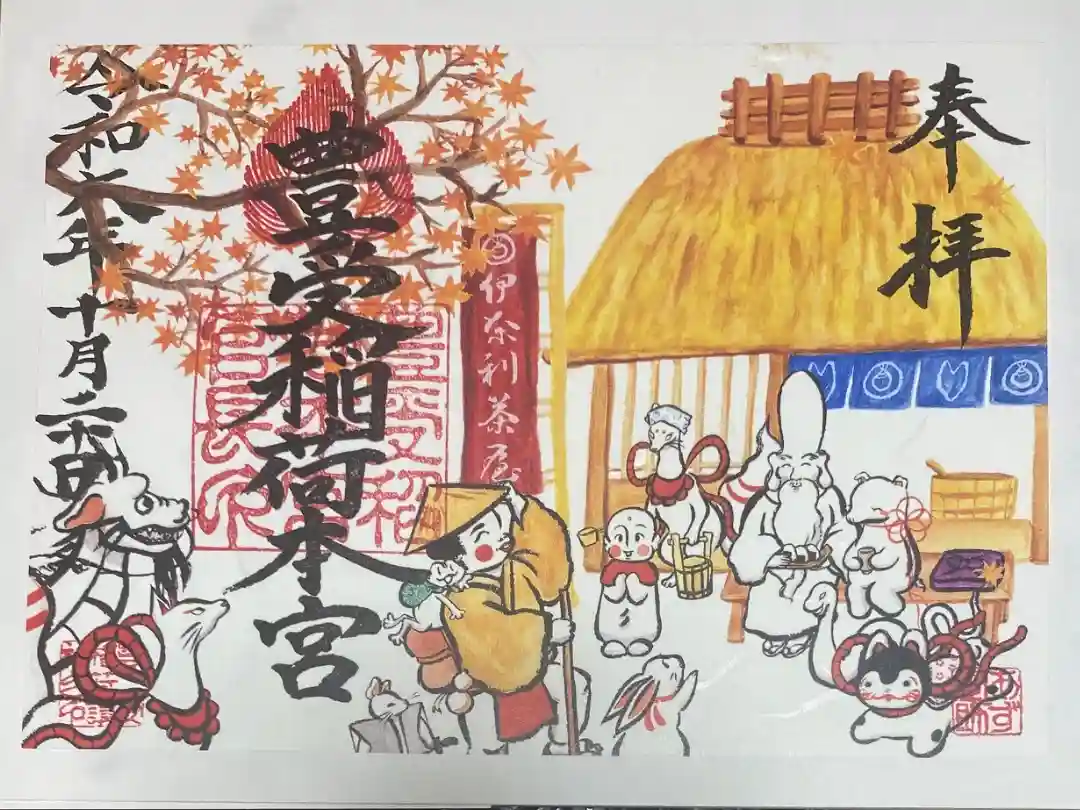 奉拝
伊奈利茶屋
豊受稲荷本宮
令和六年十月二十四日